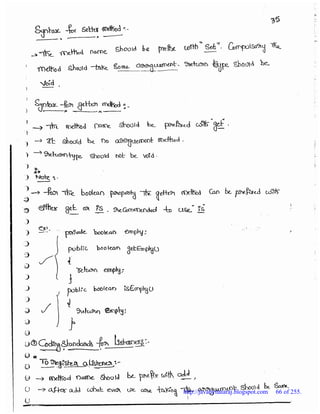 35
Syntax for Setter method :-
→ The method name should be prefix with "Set". Compulsory the
method should take some arrgument. Return type should be
void.
Syntax for getter method :
→ The method name should be prefixed with "get".
→ It should be no arrguement method.
→ Return type should not be void.
Note :-
→ for the boolean property the getter method can be prefixed with
either get or is. Recommended to use "is"
Ex:- private boolean empty;
public boolean getEmpty()
{
return empty;
}
public boolean isEmpty()
{
return empty;
}
Coding Standards for listeners :-
To Register a listener :-
→ method name should be prefix with add.
→ after add what ever we are taking the arrguement should be same.
http://javabynataraj.blogspot.com 66 of 255.